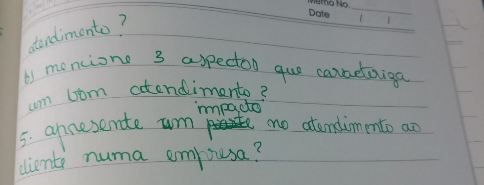 Memo No.
Date / /
atendimento?
b) mencione 3 aspectos que caracteriga
um bom atendimento?
impacto
5. apresente um no atendimento ao
cliente numa empresa?